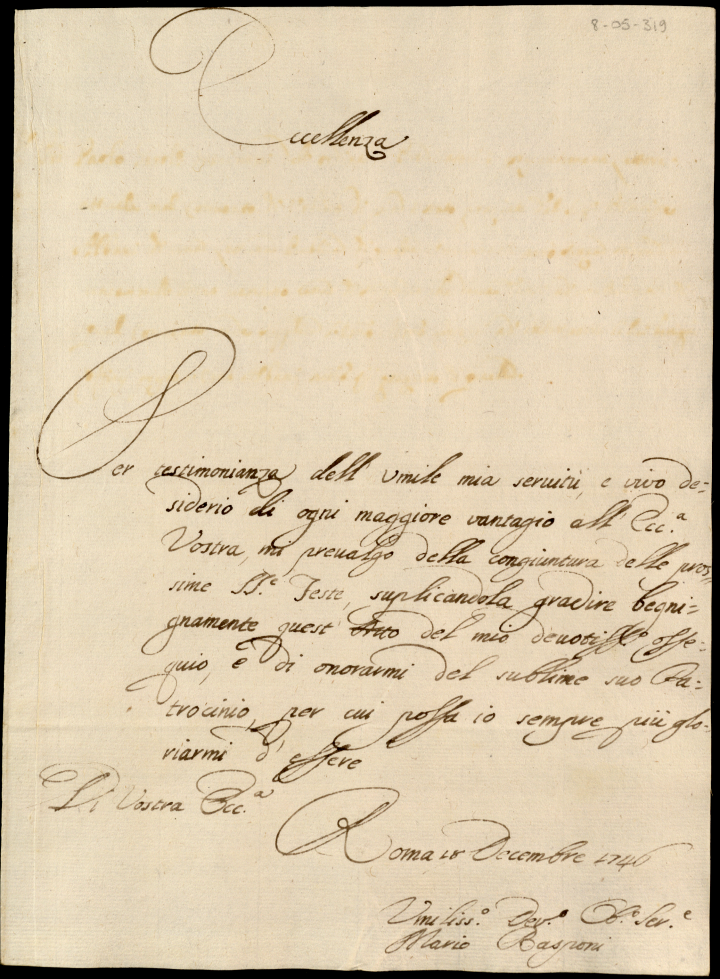 8-05-319
Eccellenza
Per testimonianza dell' Umile mia seruitù, e vivo de-
siderio di ogni maggiore vantagio all' Ecc.ª
Vostra, mi prevalgo della congiuntura delle pros-
sime SS.e Feste, suplicandola gradire begni-
gnamente quest' Atto del mio devotiss.o osse-
quio, e di onorarmi del sublime suo Pa-
trocinio, per cui possa io sempre più glo-
riarmi d' essere
Di Vostra Ecc.ª
Roma 18 Decembre 1746
Umiliss.o Dev.o Ob.o Ser.e
Mario Rasponi